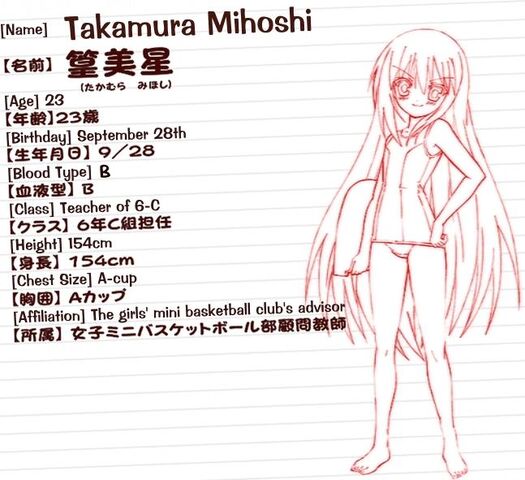 [Name] Takamura Mihoshi
【名前】 篁美星
(たかむら みほし)
[Age] 23
【年齢】23歳
[Birthday] September 28th
【生年月日】9／28
[Blood Type] B
【血液型】B
[Class] Teacher of 6-C
【クラス】6年C組担任
[Height] 154cm
【身長】154cm
[Chest Size] A-cup
【胸囲】Aカップ
[Affiliation] The girls' mini basketball club's advisor
【所属】女子ミニバスケットボール部顧問教師